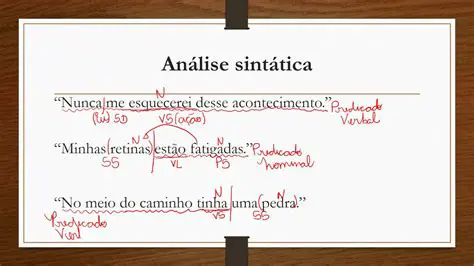 Análise sintática
N
"Nunca me esquecerei desse acontecimento." Predicado
SD VS (ação) Verbal
N N
"Minhas retinas estão fatigadas." Predicado
SS VL PS Nominal
N N
"No meio do caminho tinha uma pedra."
VS SS
Predicado